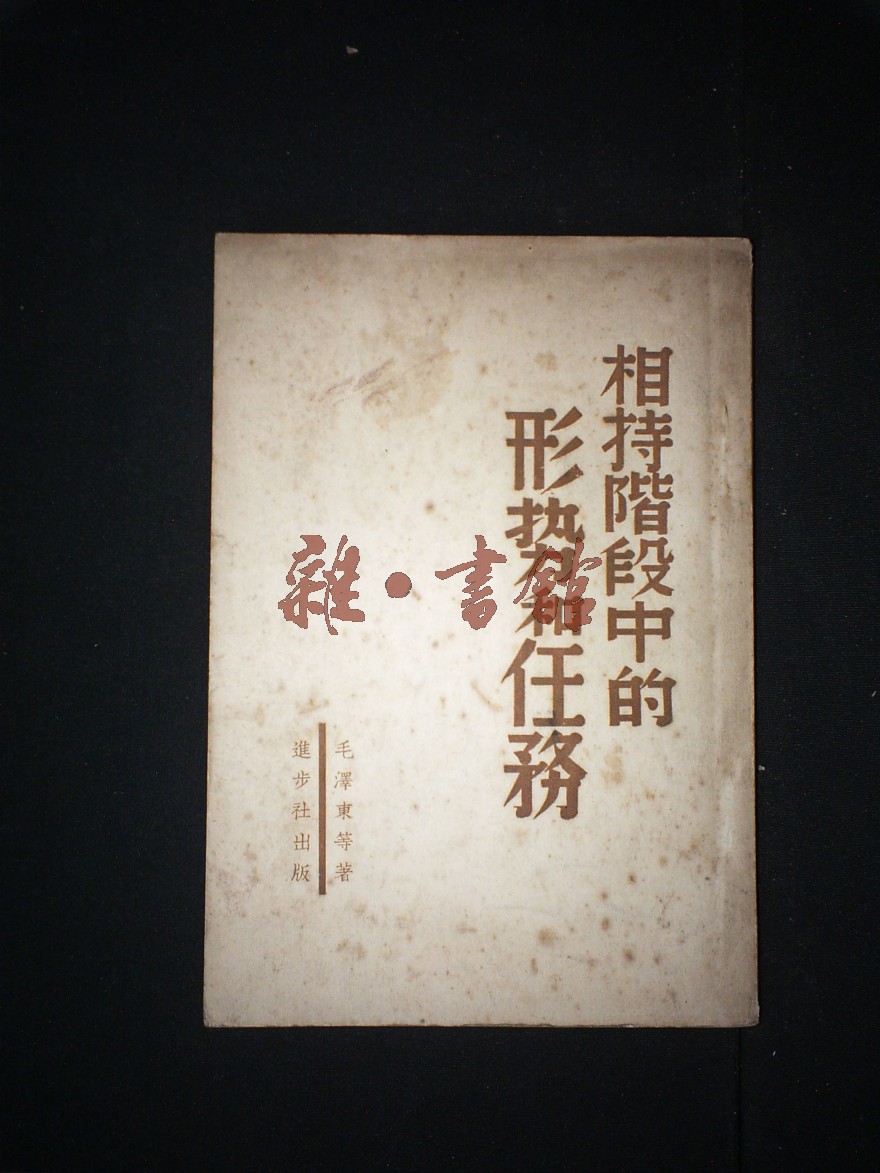 相持階段中的
形势和任務
毛澤東等著
進步社出版
雜·書館